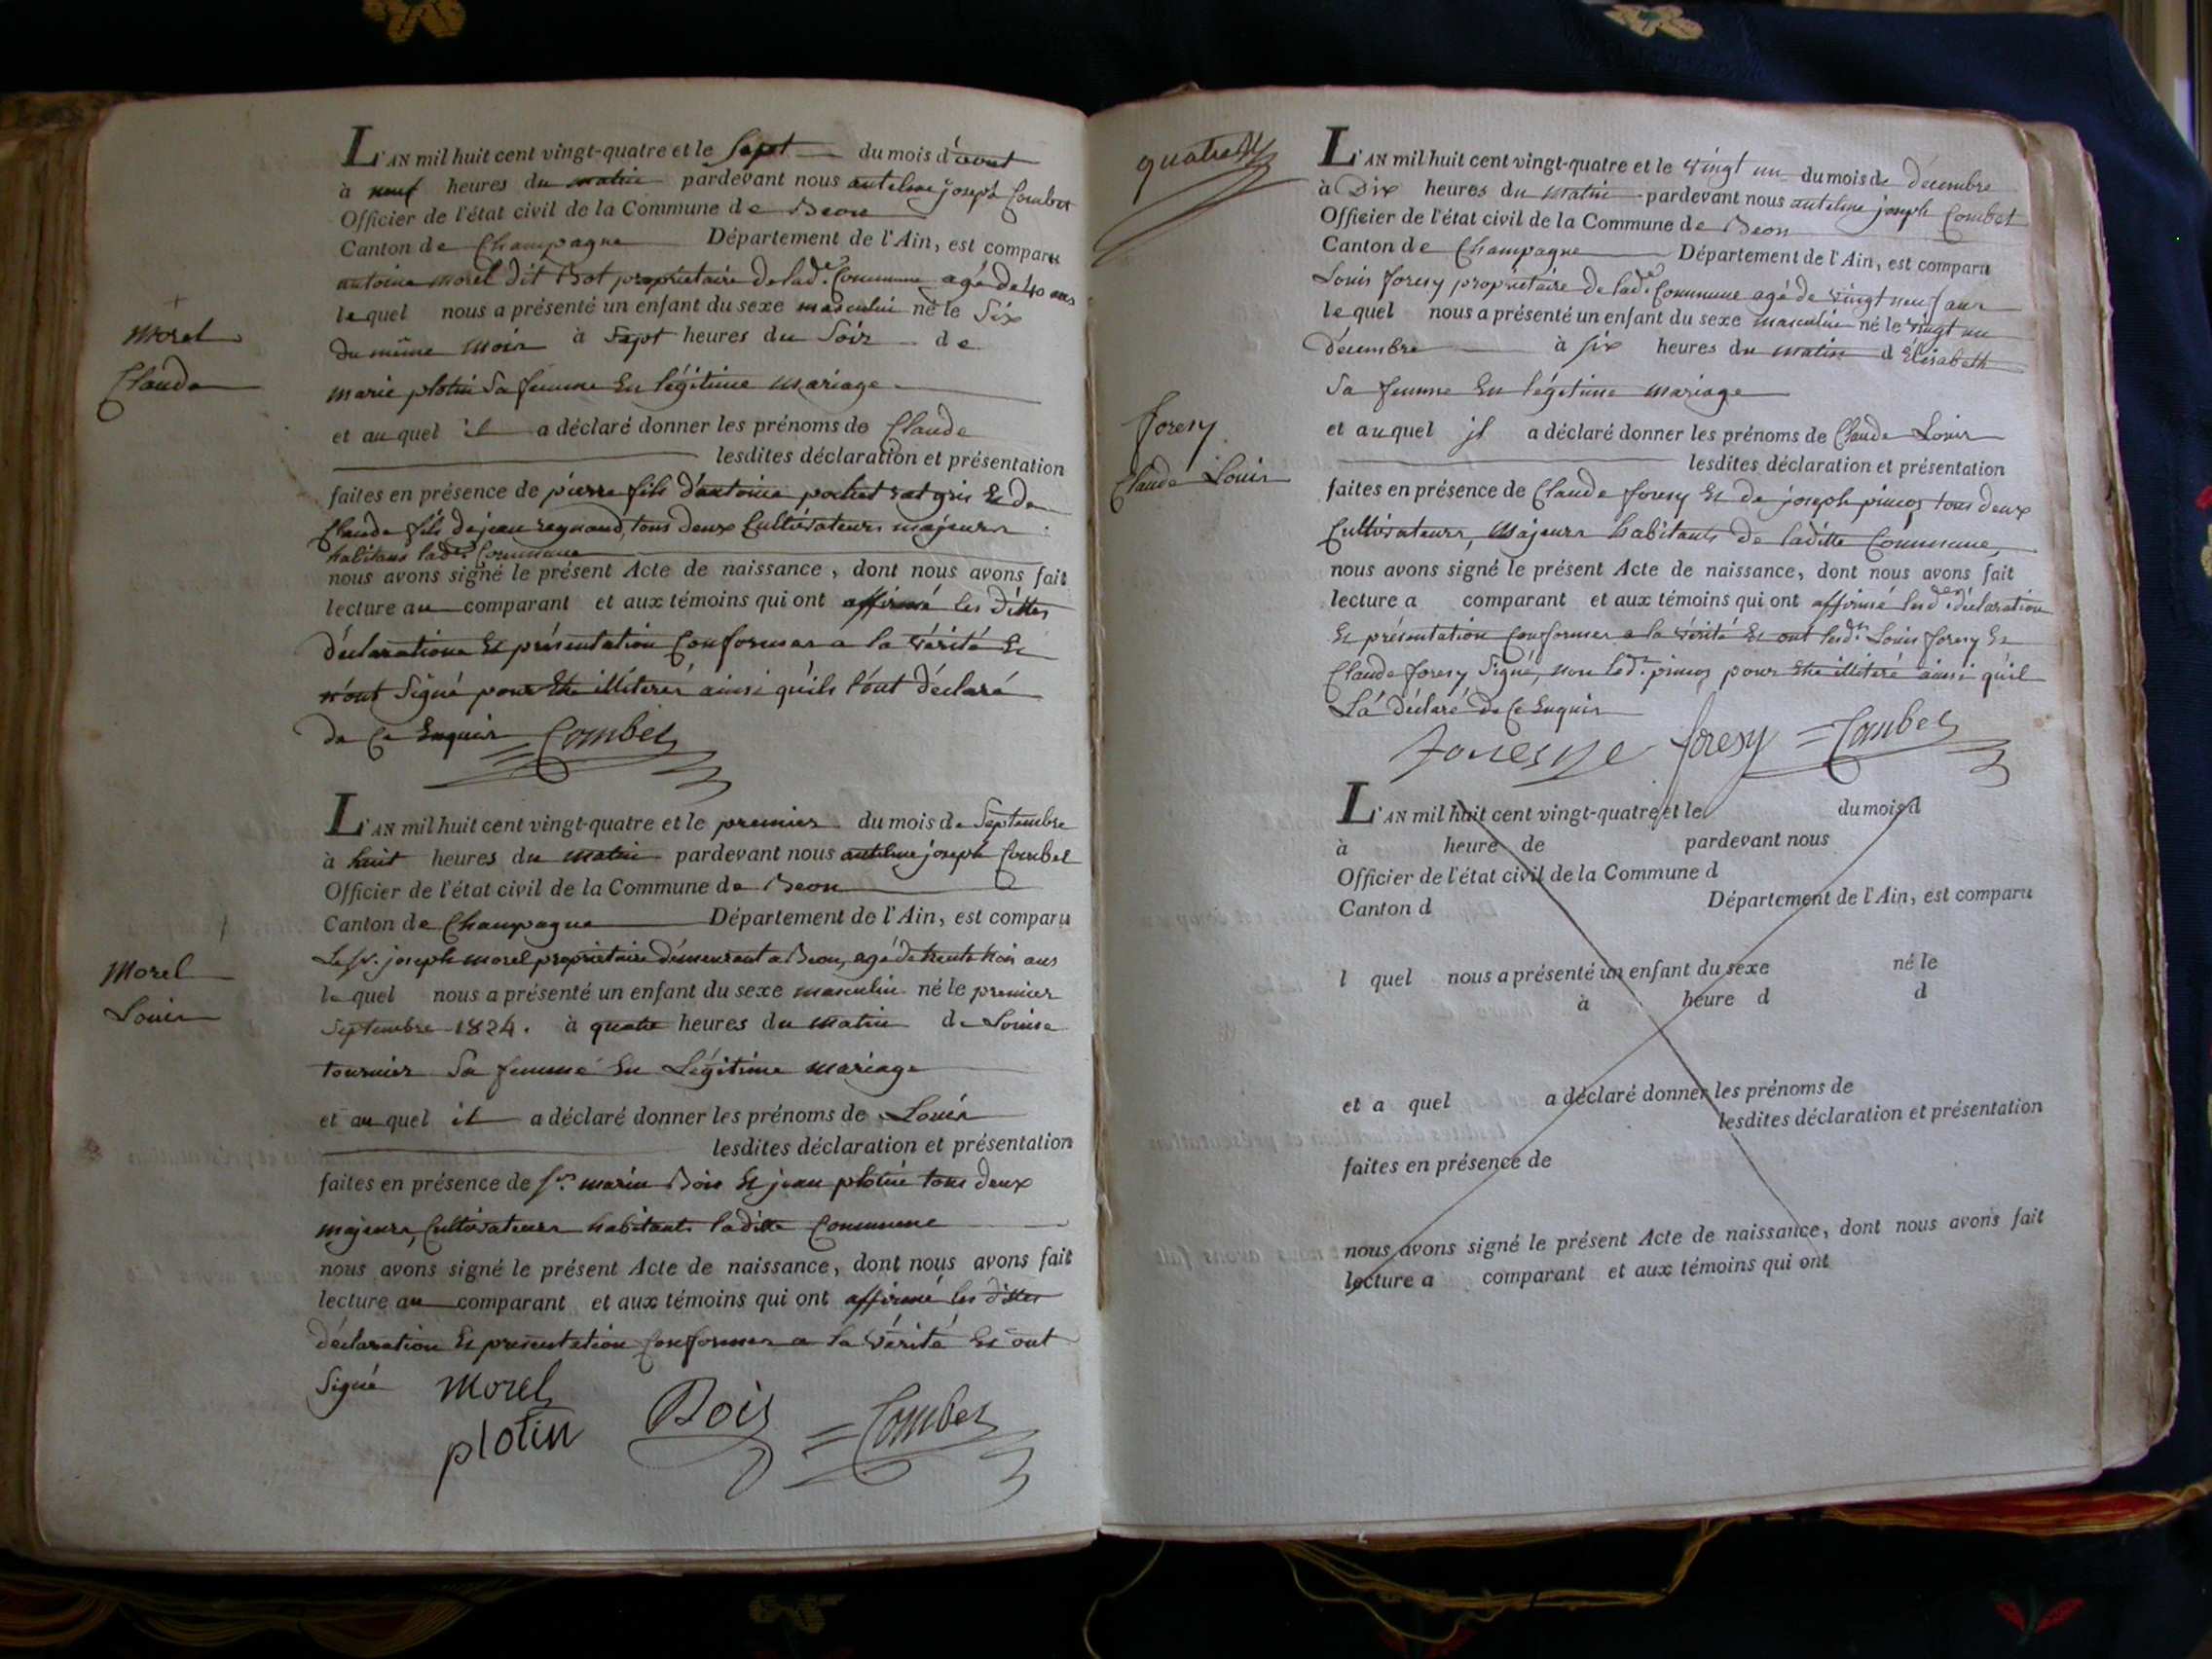 L'AN mil huit cent vingt-quatre et le Sept du mois d'aout
à neuf heures du matin pardevant nous antelme joseph Combet
Officier de l'état civil de la Commune de Beon
Canton de Champagne Département de l'Ain, est comparu
antoine morel dit Bot propriétaire de lad.e Commune agé de 40 ans
lequel nous a présenté un enfant du sexe masculin né le Six
du même mois à Sept heures du Soir de
marie plotin Sa femme En légitime mariage
et au quel il a déclaré donner les prénoms de Claude
lesdites déclaration et présentation
faites en présence de pierre fils d'antoine pochet rat gris Et de
Claude fils de jean reynaud, tous deux Cultivateurs majeurs
habitans lad.e Commune
nous avons signé le présent Acte de naissance, dont nous avons fait
lecture au comparant et aux témoins qui ont affirmé les dittes
déclarations Et présentation Conformes a la vérité Et
n'ont Signé pour Etre illiterés ainsi qu'ils l'ont déclaré
de Ce Enquis Combet
Morel
Claude
L'AN mil huit cent vingt-quatre et le premier du mois de Septembre
à huit heures du matin pardevant nous antelme joseph Combet
Officier de l'état civil de la Commune de Beon
Canton de Champagne Département de l'Ain, est comparu
Le Sr. joseph morel propriétaire demeurant a Beon, agé de trente trois ans
lequel nous a présenté un enfant du sexe masculin né le premier
Septembre 1824. à quatre heures du matin de Louise
tournier Sa femme En Légitime mariage
et au quel il a déclaré donner les prénoms de Louis
lesdites déclaration et présentation
faites en présence de Srs marin Bois Et jean plotin tous deux
majeurs, Cultivateurs habitants laditte Commune
nous avons signé le présent Acte de naissance, dont nous avons fait
lecture au comparant et aux témoins qui ont affirmé les dittes
déclaration Et presentation Conformes a la vérité Et ont
Signé Morel
plotin Bois Combet
Morel
Louis
quatre
L'AN mil huit cent vingt-quatre et le vingt un du mois de decembre
à Dix heures du matin pardevant nous antelme joseph Combet
Officier de l'état civil de la Commune de Beon
Canton de Champagne Département de l'Ain, est comparu
Louis foresy propriétaire de lad.e Commune agé de vingt neuf ans
lequel nous a présenté un enfant du sexe masculin né le vingt un
décembre à six heures du matin d'Elisabeth
Sa femme En légitime mariage
et au quel il a déclaré donner les prénoms de Claude Louis
lesdites déclaration et présentation
faites en présence de Claude foresy Et de joseph tous deux
Cultivateurs, Majeurs habitants de laditte Commune,
nous avons signé le présent Acte de naissance, dont nous avons fait
lecture a comparant et aux témoins qui ont affirmé lesd.es déclaration
Et présentation Conformes a la vérité Et ont lesd.ts Louis foresy Et
Claude foresy Signé, non led.t pour Etre illiteré ainsi qu'il
L'a déclaré de Ce Enquis
foresy Combet
foresy
Claude Louis
L'AN mil huit cent vingt-quatre et le du mois d
à heure de pardevant nous
Officier de l'état civil de la Commune d
Canton d Département de l'Ain, est comparu
l quel nous a présenté un enfant du sexe né le
à heure d d
et a quel a déclaré donner les prénoms de
lesdites déclaration et présentation
faites en présence de
nous avons signé le présent Acte de naissance, dont nous avons fait
lecture a comparant et aux témoins qui ont